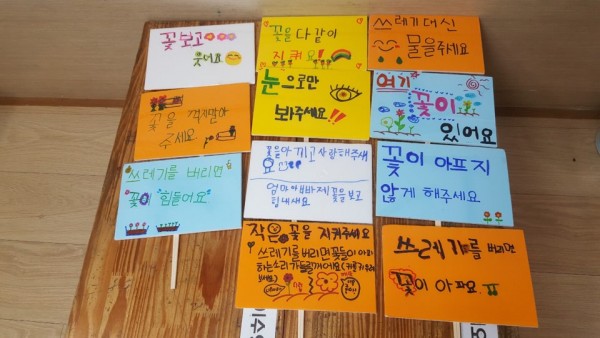 꽃보고
웃어요
꽃을 다같이
지켜요!
쓰레기대신
물을주세요
꽃을 꺾지말아
주세요
눈으로만
봐주세요!!
여기
꽃이
있어요
쓰레기를 버리면
꽃이 "힘들어요"
꽃을아끼고사랑해주세
요
엄마아빠저꽃을보고
힘내세요
꽃이 아프지
않게 해주세요
작은 꽃을 지켜주세요
쓰레기를버리면꽃들이아파
하는소리가들릴꺼에요
쓰레기를 버리면
꽃이 아파요